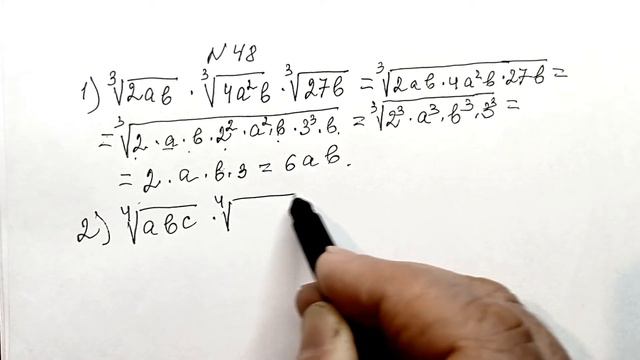 N 48
1) ∛(2ab) · ∛(4a²b) · ∛(27b) = ∛(2ab · 4a²b · 27b) =
= ∛(2 · a · b · 2² · a² · b · 3³ · b) = ∛(2³ · a³ · b³ · 3³) =
= 2 · a · b · 3 = 6ab.
2) ∜(abc) · ∜